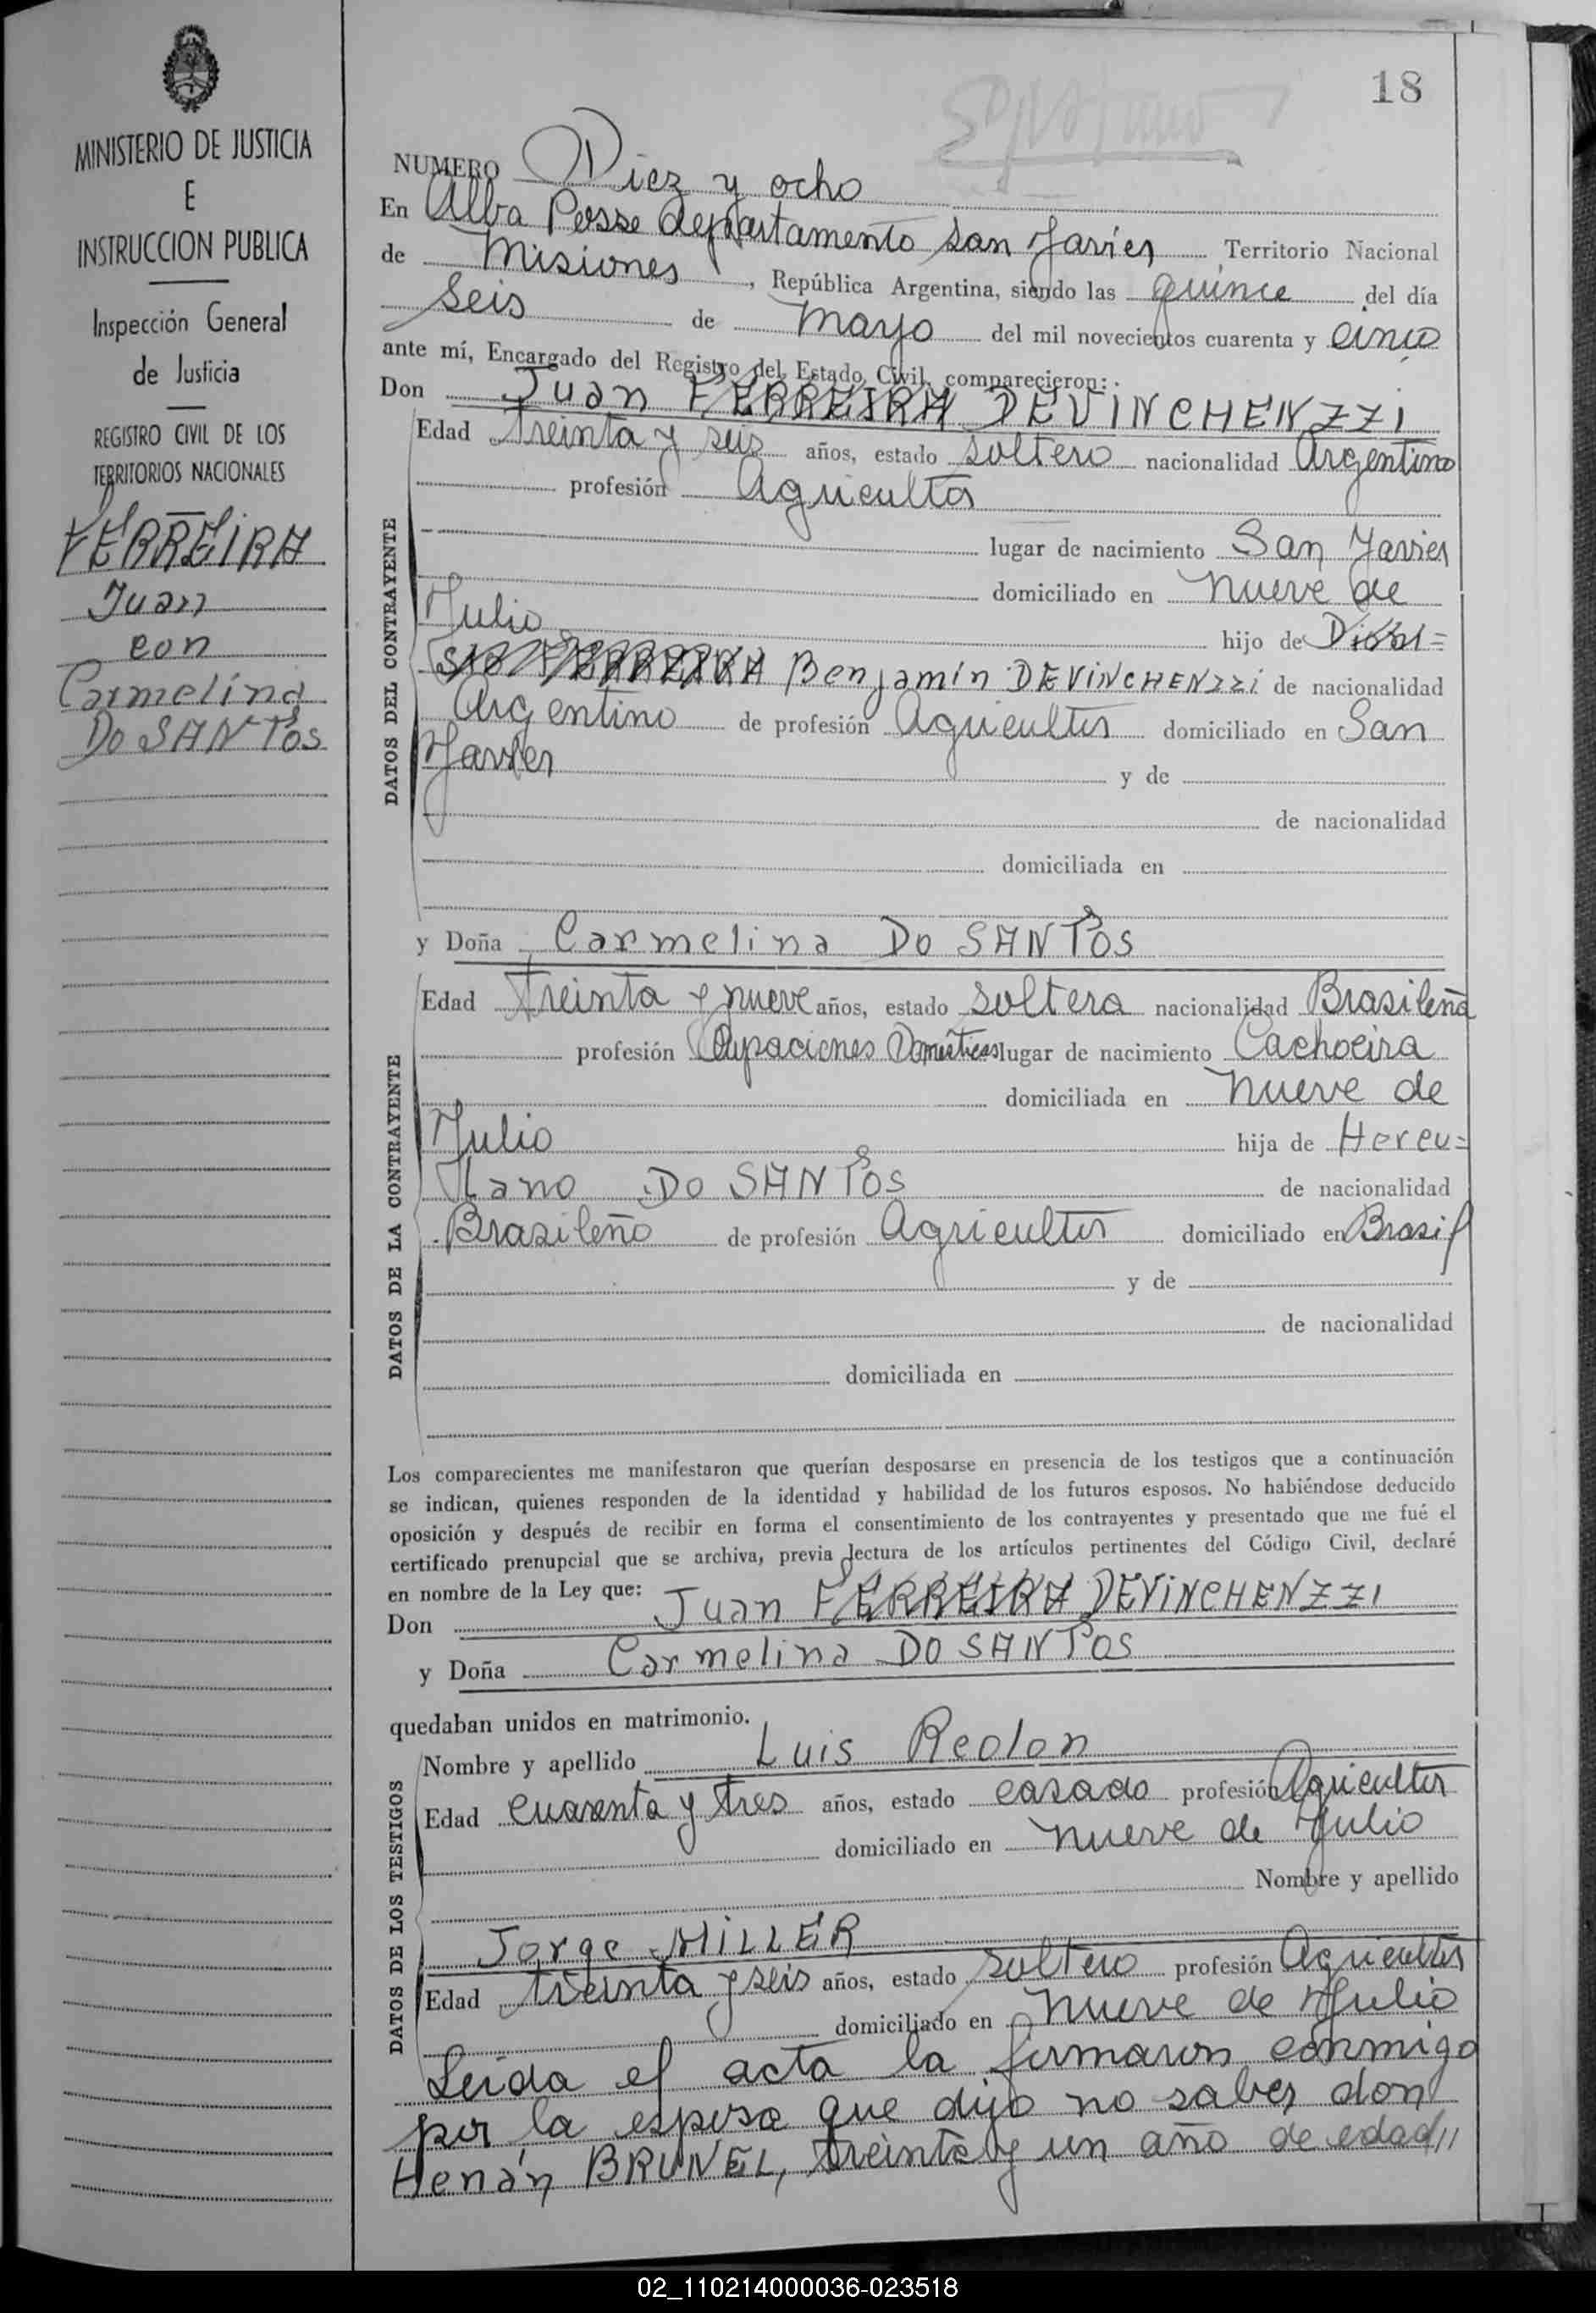 18
MINISTERIO DE JUSTICIA
E
INSTRUCCION PUBLICA
Inspección General
de Justicia
REGISTRO CIVIL DE LOS
TERRITORIOS NACIONALES
FERREIRA
Juan
con
Carmelina
DO SANTOS
NUMERO Diez y ocho
En Alba Posse departamento San Javier Territorio Nacional
de Misiones, República Argentina, siendo las quince del día
Seis de Mayo del mil novecientos cuarenta y cinco
ante mí, Encargado del Registro del Estado Civil, comparecieron:
Don Juan FERREIRA DEVINCHENZZI
DATOS DEL CONTRAYENTE
Edad treinta y seis años, estado soltero nacionalidad Argentino
profesión Agricultor
lugar de nacimiento San Javier
domiciliado en Nueve de
Julio hijo de Dioni=
sio FERREIRA Benjamín DEVINCHENZZI de nacionalidad
Argentino de profesión Agricultor domiciliado en San
Javier y de
de nacionalidad
domiciliada en
y Doña Carmelina DO SANTOS
DATOS DE LA CONTRAYENTE
Edad treinta y nueve años, estado soltera nacionalidad Brasileña
profesión Ocupaciones Domésticas lugar de nacimiento Cachoeira
domiciliada en Nueve de
Julio hija de Hercu=
lano DO SANTOS de nacionalidad
Brasileño de profesión Agricultor domiciliado en Brasil
y de
de nacionalidad
domiciliada en
Los comparecientes me manifestaron que querían desposarse en presencia de los testigos que a continuación
se indican, quienes responden de la identidad y habilidad de los futuros esposos. No habiéndose deducido
oposición y después de recibir en forma el consentimiento de los contrayentes y presentado que me fué el
certificado prenupcial que se archiva, previa lectura de los artículos pertinentes del Código Civil, declaré
en nombre de la Ley que:
Don Juan FERREIRA DEVINCHENZZI
y Doña Carmelina DO SANTOS
quedaban unidos en matrimonio.
DATOS DE LOS TESTIGOS
Nombre y apellido Luis Reolon
Edad cuarenta y tres años, estado casado profesión Agricultor
domiciliado en Nueve de Julio
Nombre y apellido
Jorge MILLER
Edad treinta y seis años, estado soltero profesión Agricultor
domiciliado en Nueve de Julio
Leida el acta la firmaron conmigo
por la esposa que dijo no saber don
Henán BRUNEL, treinta y un año de edad//
02_110214000036-023518